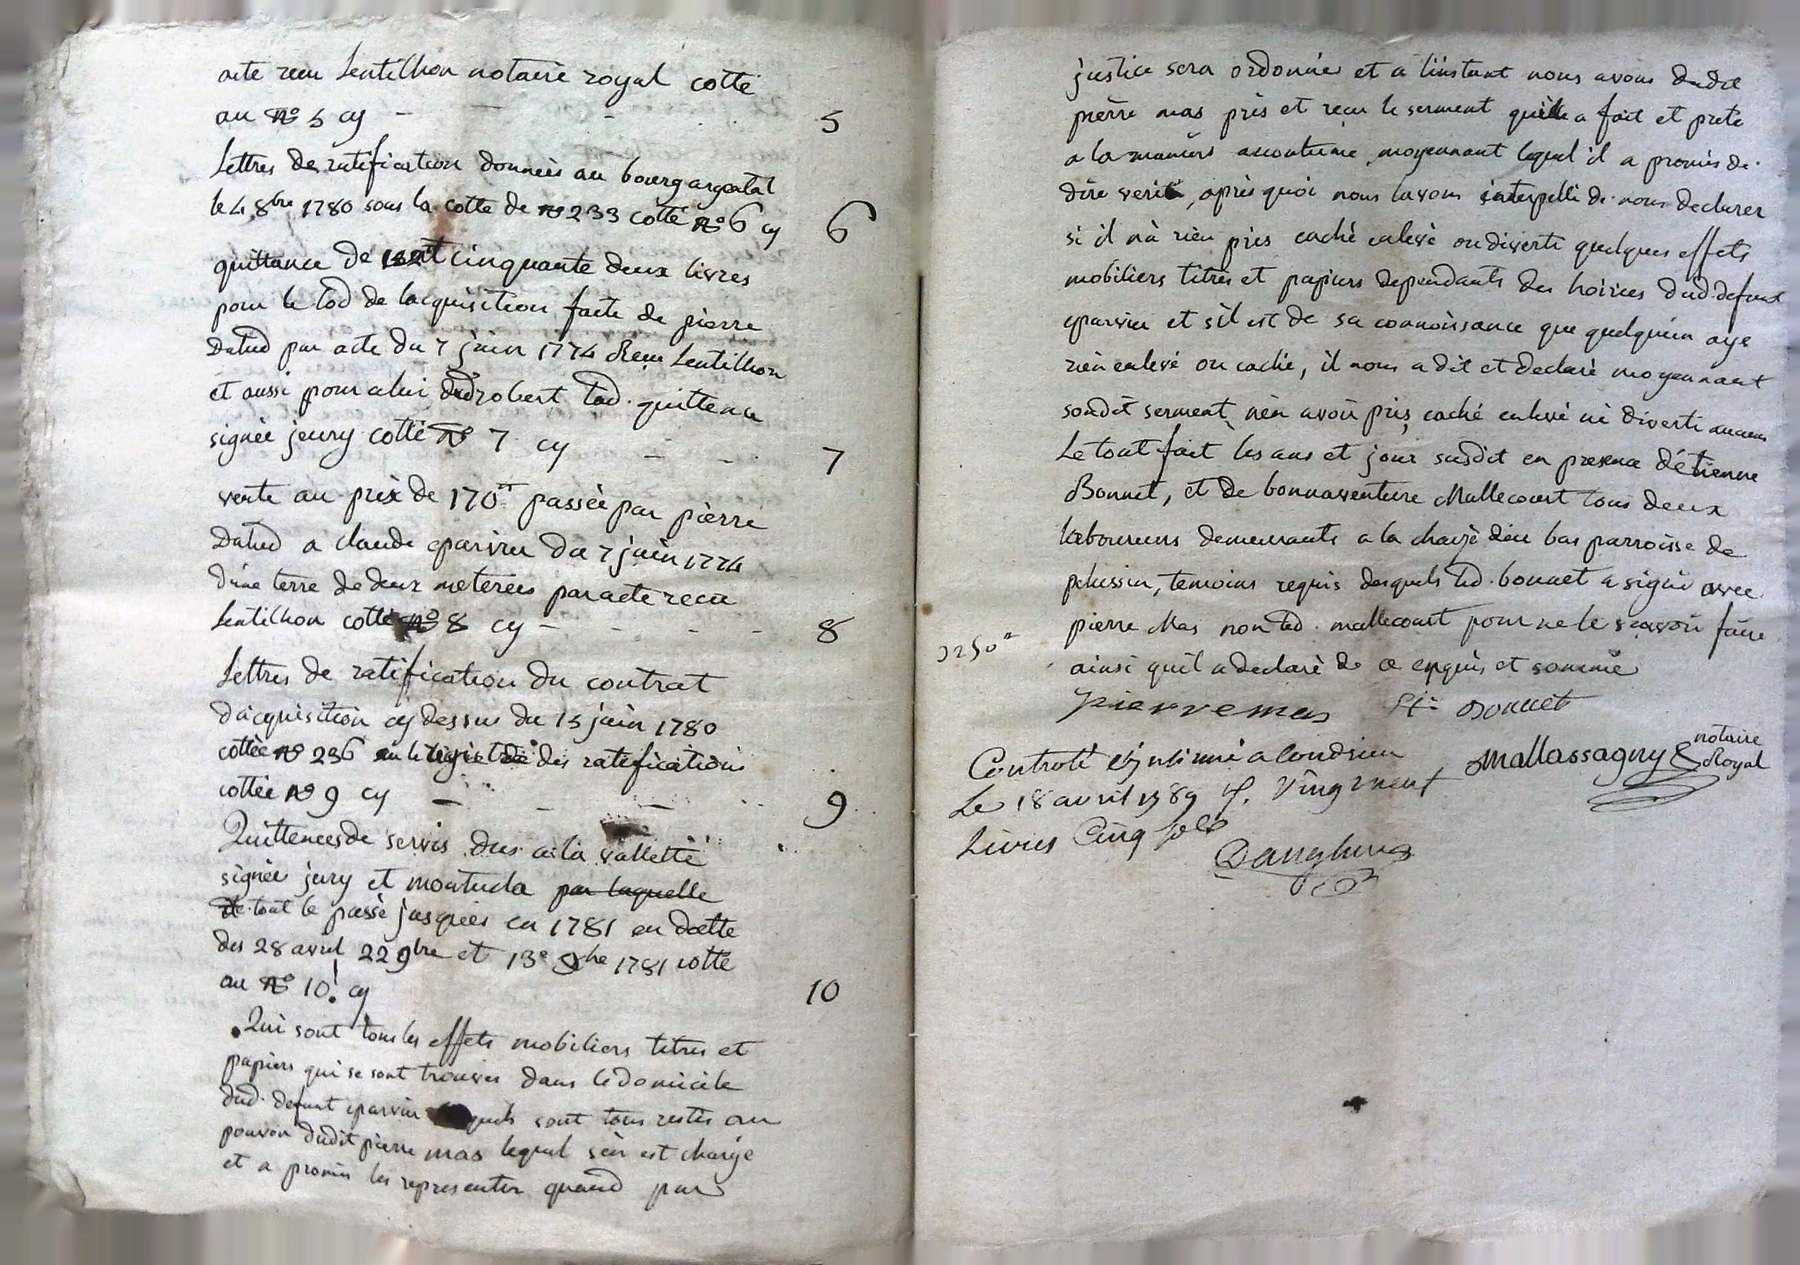 acte recu Lentilhon notaire royal cotté
au N° 5 cy - - - 5
Lettres de ratification donneés au bourg argental
le 4 8bre 1780 sous la cotte de N° 233 cotté N° 6 cy 6
quittance de cinquante deux livres
pour le lod de lacquisition faite de pierre
Dalud par acte du 7 juin 1774 Recu Lentilhon
et aussi pour celui dud robert lad. quittence
signée jeury cotté N° 7 cy - - 7
vente au prix de 170tt passée par pierre
Dalud a claude eparvier du 7 juin 1774
d'une terre de deux meterées par acte recu
Lentilhon cotté N° 8 cy - - - - 8
Lettres de ratification du contrat
d'acquisition cy dessus du 15 juin 1780
cottée N° 236 des ratifications
cottée N° 9 cy - - - 9
Quittences de servis dus a la vallette
signée jury et montuda par laquelle
de tout le passé jusques en 1781 en datte
des 28 avril 22 9bre et 13e 1781 cotté
au N° 10! cy 10
Qui sont tous les effets mobiliers titres et
papiers qui se sont trouvés dans le domicile
dud. defunt eparvier quels sont tous restés au
pouvoir dudit pierre mas lequel s'en est chargé
et a promis les representer quand par
justice sera ordonné et a linstant nous avons dudit
pierre mas pris et recu le serment quil a fait et prete
a la maniere accoutumé, moyennant lequel il a promis de
dire verité, après quoi nous lavons interpellé de nous declarer
si il n'a rien pris caché enlevé ou diverti quelques effets
mobiliers titres et papiers dependants des hoiries dud. defunt
eparvier et s'il est de sa connoissance que quelqu'un aye
rien enlevé ou caché, il nous a dit et declaré moyennant
sondit serment n'en avoir pris, caché enlevé ni diverti aucuns
Le tout fait les ans et jour susdit en presence d'étienne
Bonnet, et de bonnaventure Mallecourt tous deux
laboureurs demeurants a la chaize dieu bas parroisse de
pelussin, temoins requis desquels led. bonnet a signé avec
pierre Mas non led. mallecourt pour ne le scavoir faire
ainsi quil a declaré de ce enquis et sommé
pierre mas Et: Bonnet
Mallassagny notaire
Royal
Controlé insinué a Condrieu
Le 18 avril 1789 R. vingt neuf
Livres Cinq sols